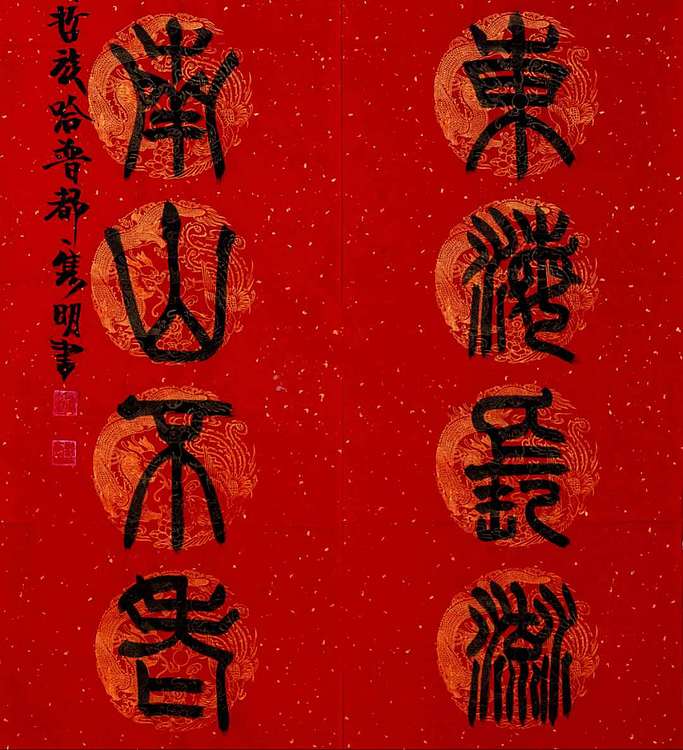 東海長流
南山不老
哲族哈普都·隽明書